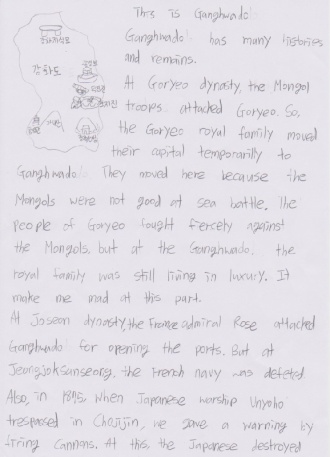 This is Ganghwado!
Ganghwado! has many histories
and remains.
At Goryeo dynasty, the Mongol
troops attacked Goryeo. So,
the Goryeo royal family moved
their capital temporarily to
Ganghwado! They moved here because the
Mongols were not good at sea battle. The
people of Goryeo fought fiercely against
the Mongols. but at the Ganghwado. the
royal family was still living in luxury. It
make me mad at this part.
At Joseon dynasty, the France admiral Rose attacked
Ganghwado! for opening the ports. But at
Jeongjoksanseong, the French navy was defeted
Also, in 1875, when Japanese warship Unyoho
trespassed in Chojijin, we gave a warning by
firing cannons. At this, the Japanese destroyed
강화도